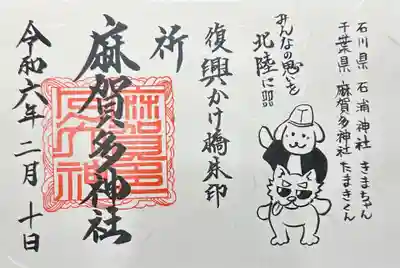 石川県 石浦神社 きまちゃん
千葉県 麻賀多神社 たまきくん
みんなの思いを
北陸に!!!
復興かけ橋朱印
祈
麻賀多神社
令和六年二月十日